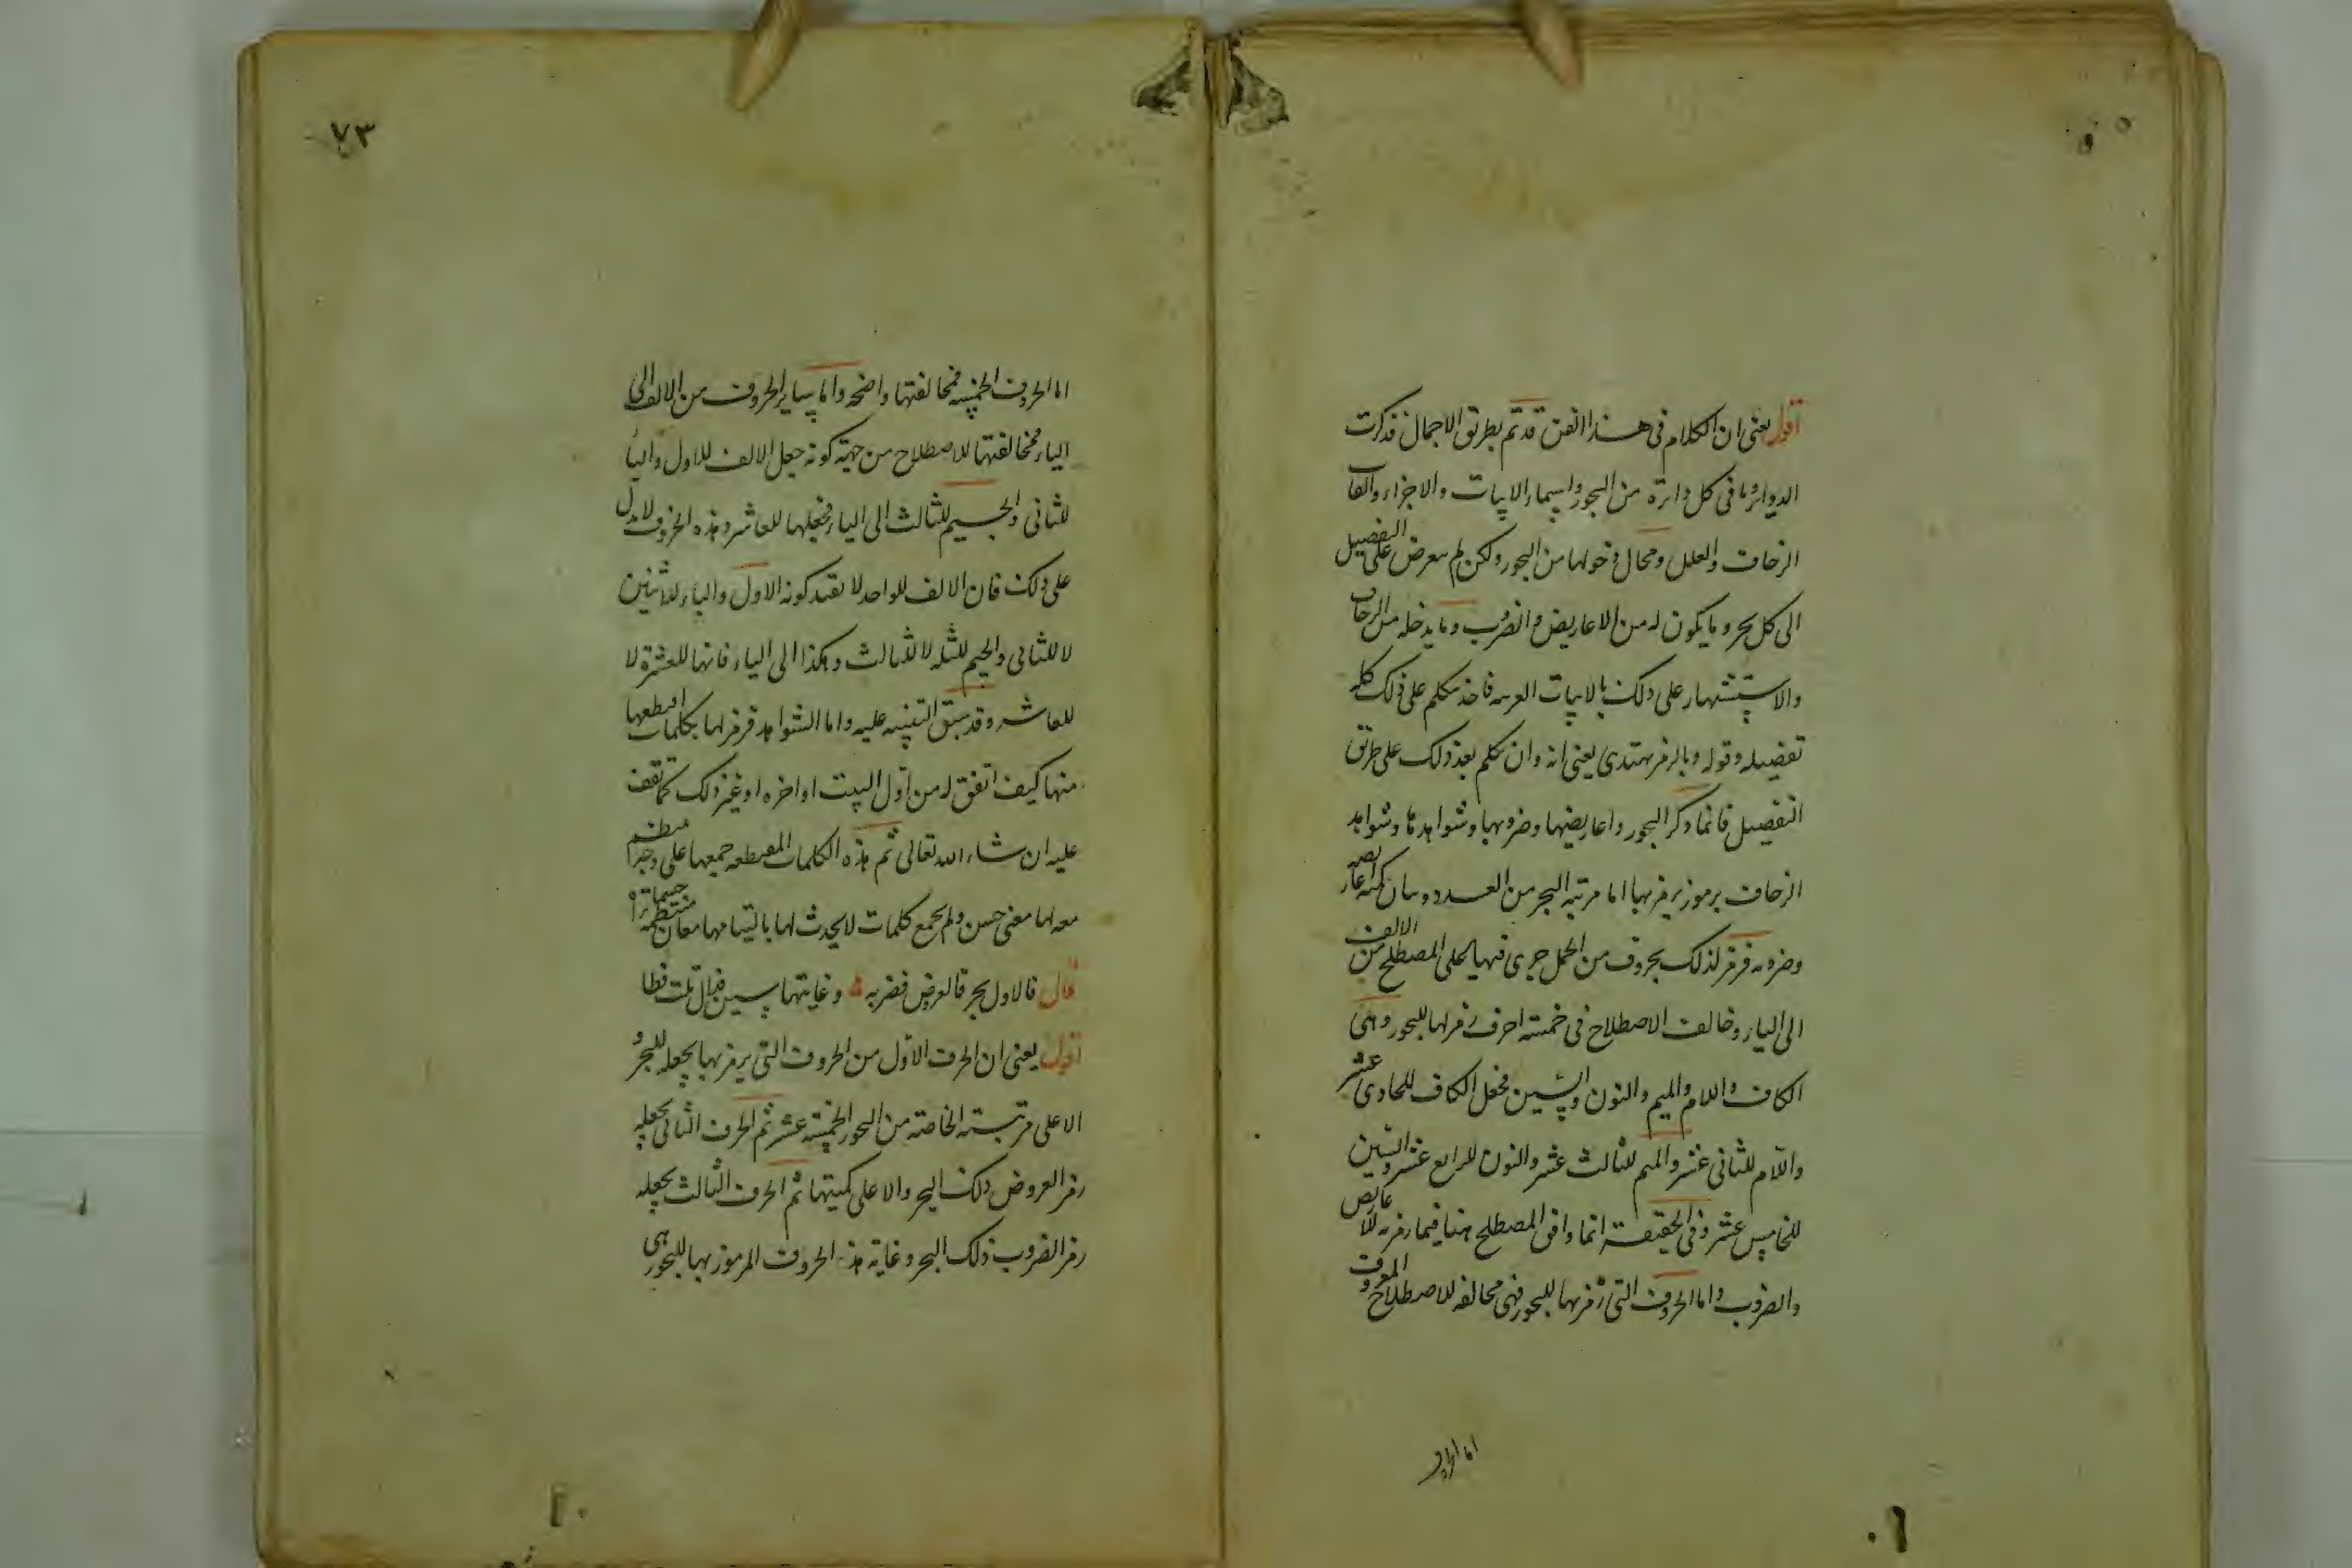 اقول يعنى ان الكلام فى هذا الفن قد تم بطريق الاجمال فذكرت
الدواير وما فى كل دائرة من البحور واسماء الابيات والاجزاء والقاب
الزحاف والعلل ومحال دخولها من البحور ولكن لم يتعرض على التفصيل
الى كل بحر وما يكون له من الاعاريض والضروب وما يدخله من الزحاف
والاستشهاد على ذلك بالابيات العربيه فاخذ يتكلم على ذلك كله
تفصيله وقوله وبالرمز يهتدى يعنى انه وان تكلم بعد ذلك على طريق
التفصيل فانما ذكر البحور واعاريضها وضروبها وشواهدها وشواهد
الزحاف برموز يرمز بها اما مرتبه البحر من العدد وبيان كميه اعاريضه
وضروبه فرمز لذلك بحروف من الجمل جرى فيها على المصطلح من الالف
الى الياء وخالف الاصطلاح فى خمسة احرف رمز لها للبحور وهى
الكاف واللام والميم والنون والسين فجعل الكاف للحادى عشر
واللام للثانى عشر والميم للثالث عشر والنون للرابع عشر والسين
للخامس عشر وفى الحقيقة انما وافق المصطلح هنا فيما رمز به للاعاريض
والضروب واما الحروف التى رمز بها للبحور فهى مخالفه للاصطلاح المعروف
اما الحروف
٧٣
اما الحروف الخمسه فمخالفتها واضحه واما ساير الحروف من الالف الى
الياء فمخالفتها للاصطلاح من جهة كونه جعل الالف للاول والباء
للثانى والجيم للثالث الى الياء فجعلها للعاشر وهذه الحروف لا تدل
على ذلك فان الالف للواحد لا بقيد كونه الاول والباء للاثنين
لا للثانى والجيم للثلثه لا للثالث وهكذا الى الياء فانها للعشرة لا
للعاشر وقد سبق التنبيه عليه واما الشواهد فرمز لها بكلمات اقتطعها
منها كيف اتفق له من اول البيت او اخره او غير ذلك كما تقف
عليه ان شاء الله تعالى ثم هذه الكلمات المقتطعه جمعها على وجه
معه لها معنى حسن ولم يجمع كلمات لا يحدث لها بالتيامها معان منتظمه
قال فالاول بحر فالعروض فضربه وغايتها سين فدال تلت فطا
اقول يعنى ان الحرف الاول من الحروف التى يرمز بها يجعله للبحر و
الا على مرتبته الخاصة من البحور الخمسه عشر ثم الحرف الثانى يجعله
رمز العروض ذلك البحر والا على كميتها ثم الحرف الثالث يجعله
رمز الضروب ذلك البحر وغاية هذه الحروف المرموز بها للبحور هى